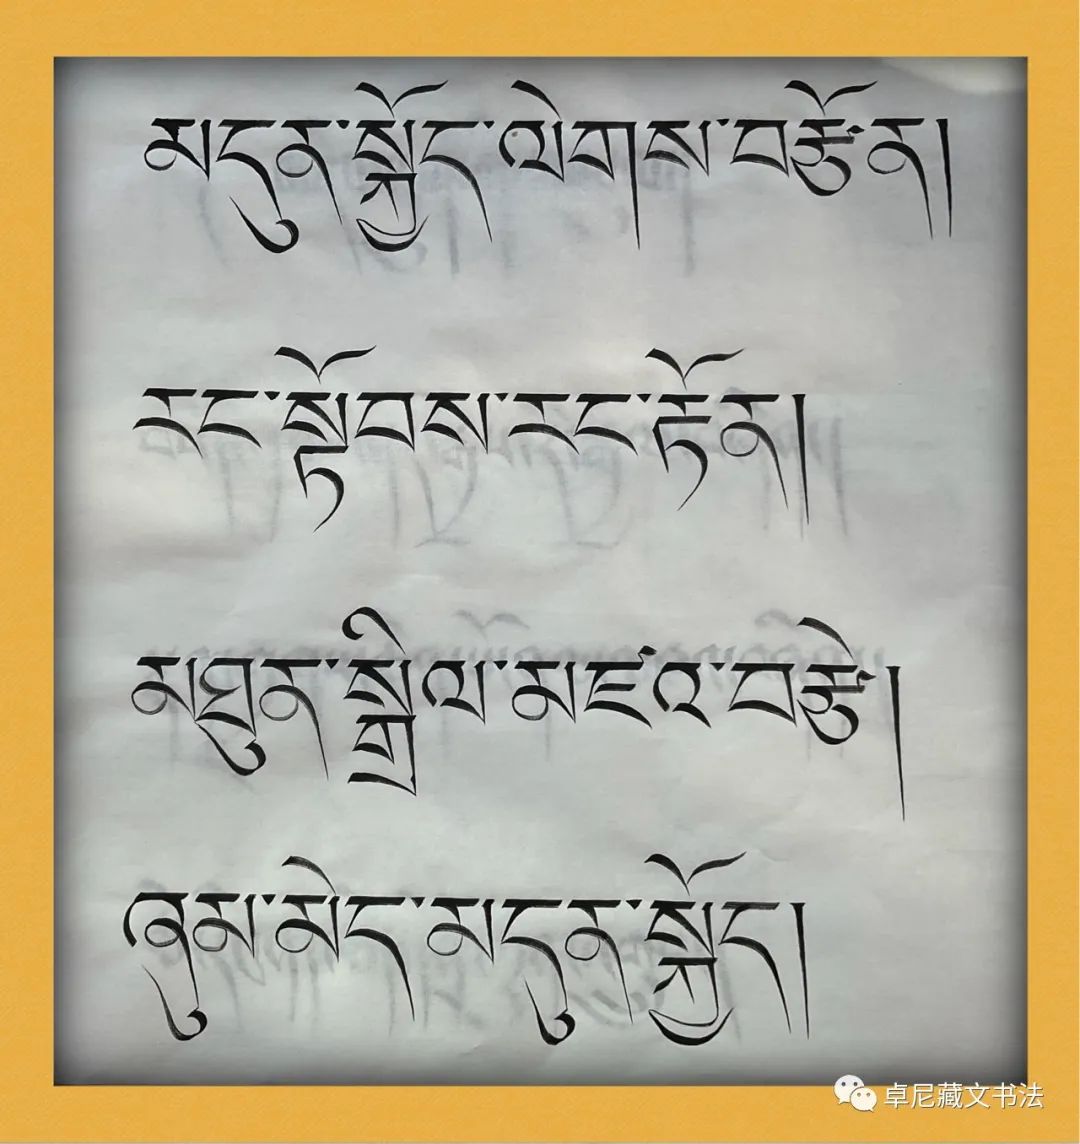 མདུན་སྐྱོད་ལེགས་བརྩོན།
རང་སྟོབས་རང་རྟོན།
མཐུན་སྒྲིལ་མཛའ་བརྩེ།
ཞུམ་མེད་མདུན་སྐྱོད།
卓尼藏文书法